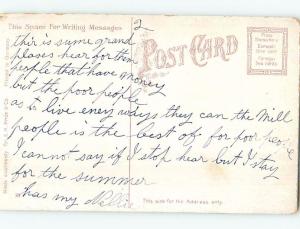 This Space For Writing Messages
2
POST CARD
this is sume grand
plases hear for them
people that have money
but the poor people
as to live eney ways they can the Mill
people is the best off for poor people
I cannot say if I stop hear but I stay
for the summer
has my Nellie
This side for the Address only.